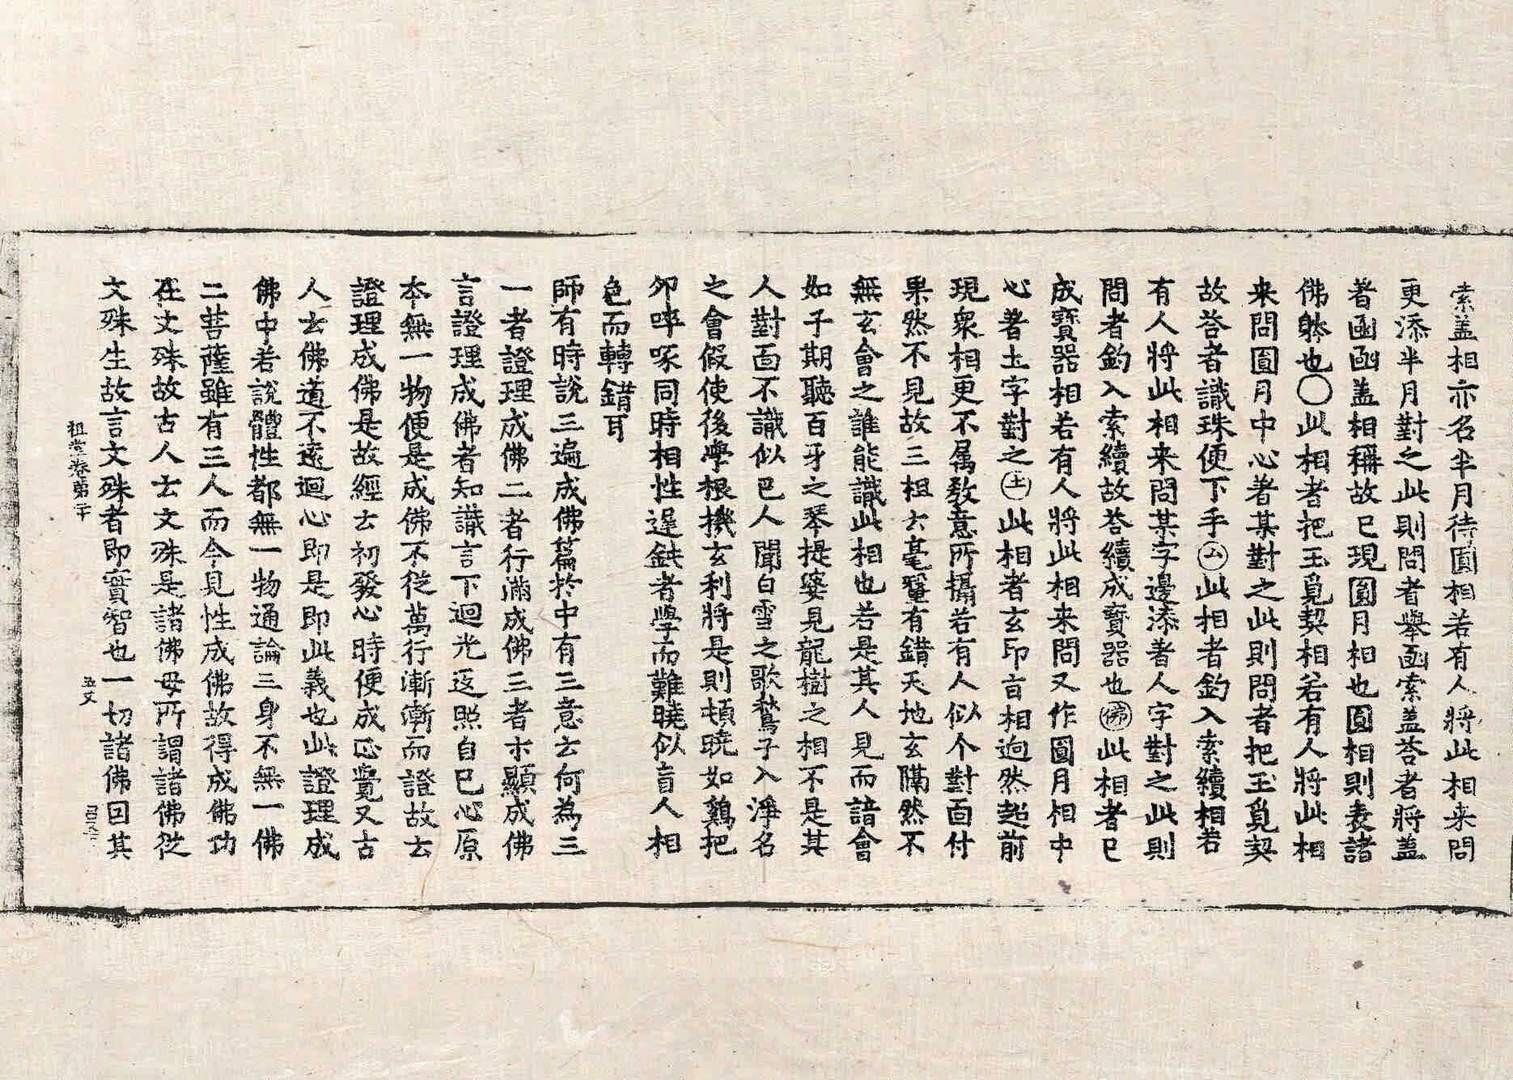 索盖相亦名半月待圓相若有人將此相来問
更添半月對之此則問者舉函索盖荅者將盖
著函函盖相稱故已現圓月相也圓相則表諸
佛躰也〇此相者把玉覓契相若有人將此相
来問圓月中心著某對之此則問者把玉覓契
故荅者識珠便下手㋰此相者釣入索續相若
有人將此相来問某字邊添著人字對之此則
問者釣入索續故荅續成寶器也㊋此相者已
成寶器相若有人將此相来問又作圓月相中
心著土字對之㊏此相者玄印㫖相逈然超前
現衆相更不属教意所攝若有人似个對面付
果然不見故三祖云毫氂有錯天地玄隔然不
無玄會之誰能識此相也若是其人見而諳會
如子期聽百牙之琴提婆見龍樹之相不是其
人對面不識似巴人聞白雪之歌鶖子入淨名
之會假使後學根機玄利將是則頓曉如鷄把
夘啐啄同時相性遲鈍者學而難曉似盲人相
色而轉錯耳
師有時説三遍成佛篇於中有三意云何為三
一者證理成佛二者行滿成佛三者示顯成佛
言證理成佛者知識言下迴光返照自己心原
本無一物便是成佛不從萬行漸漸而證故云
證理成佛是故經云初發心時便成正覺又古
人云佛道不遠迴心即是即此義也此證理成
佛中若説體性都無一物通論三身不無一佛
二菩薩雖有三人而今見性成佛故得成佛功
在文殊故古人云文殊是諸佛母所謂諸佛從
文殊生故言文殊者即實智也一切諸佛因其
祖堂卷第二十
五丈